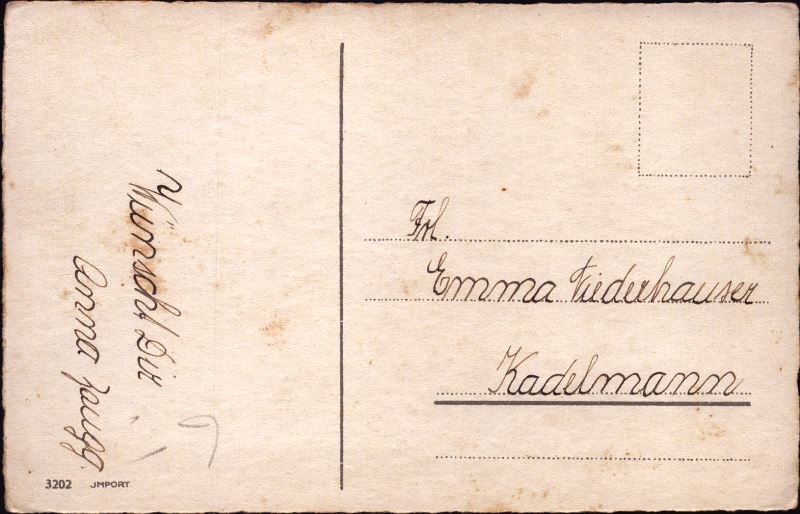 Wünscht Dir
Anna Zaugg.
3202 JMPORT
Frl.
Emma Niederhauser
Kadelmann